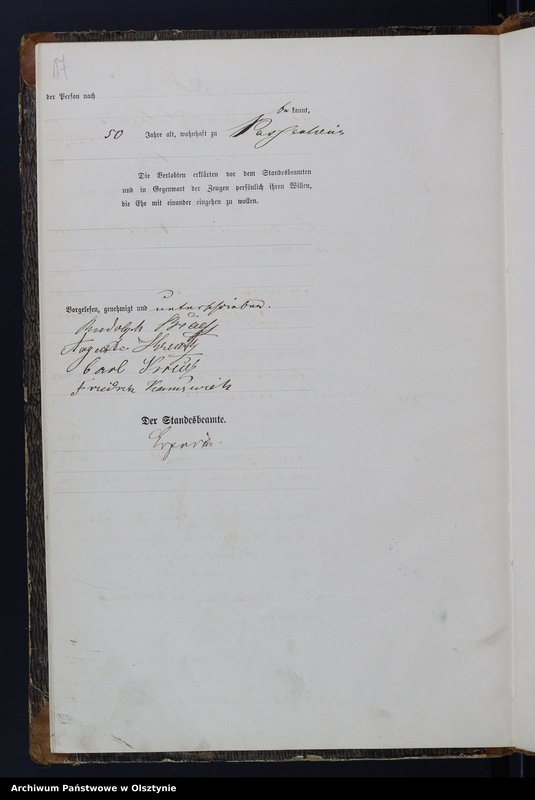 17
der Person nach
be kannt,
50 Jahre alt, wohnhaft zu
Die Verlobten erklärten vor dem Standesbeamten
und in Gegenwart der Zeugen persönlich ihren Willen,
die Ehe mit einander eingehen zu wollen.
Vorgelesen, genehmigt und unterschrieben.
Rudolph
Auguste
Carl
Friedrich
Der Standesbeamte.
Archiwum Państwowe w Olsztynie